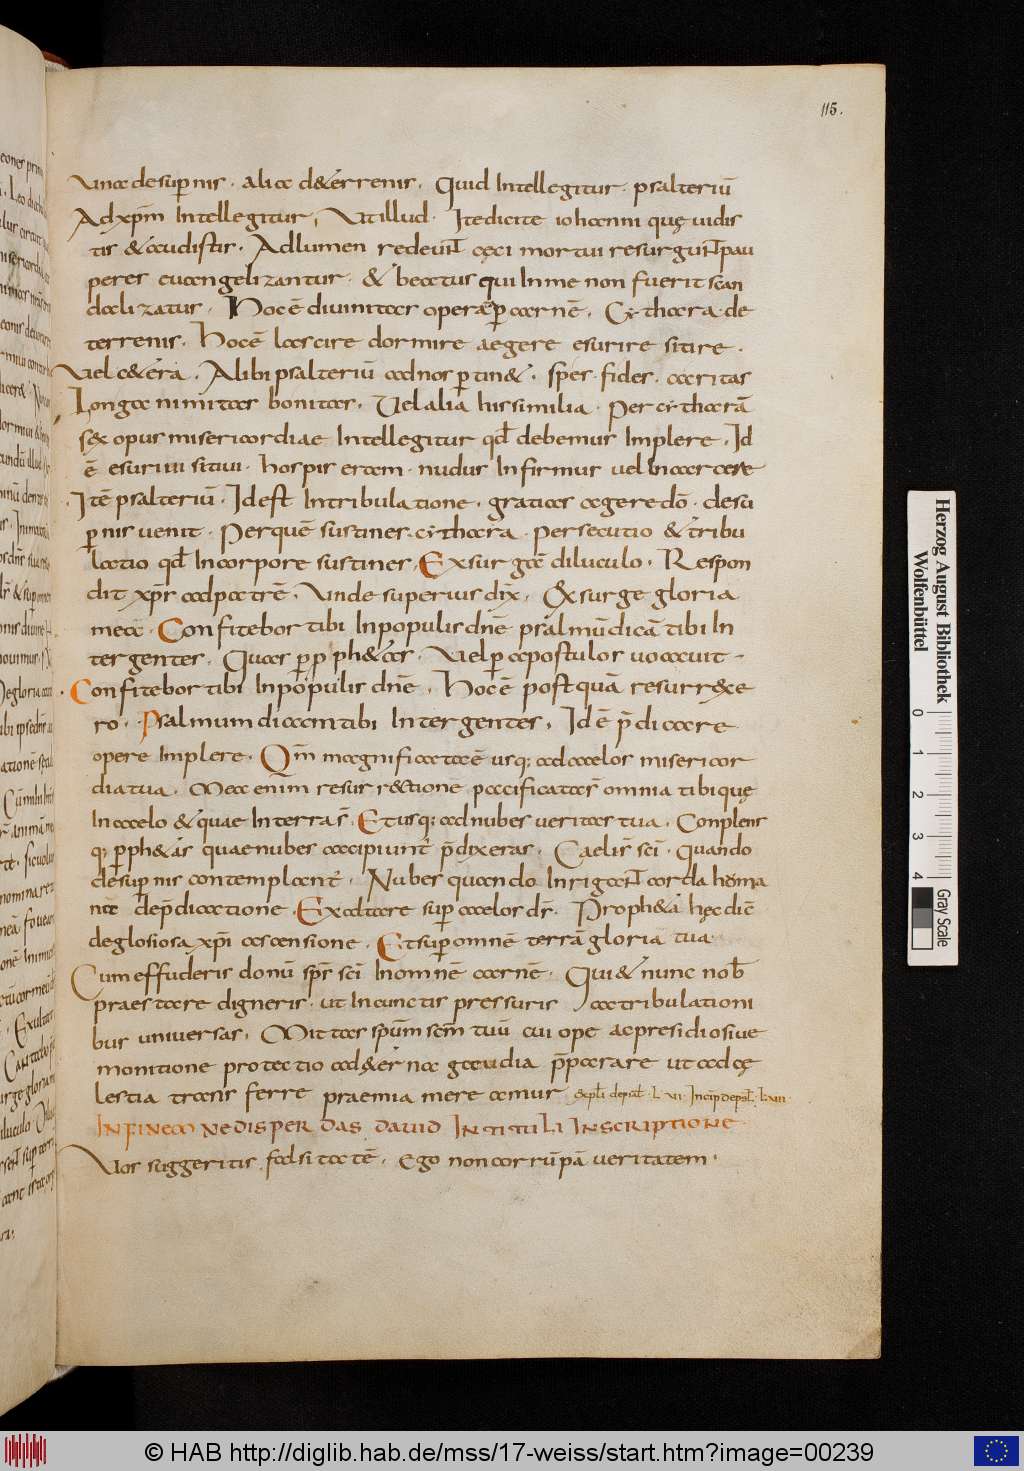 115.
una desupernis · alia d&errenis · Quid Intellegitur · psalteriū
Ad xp̄m Intellegitur, Ut illud · Ite dicite iohanni quę uidis
tis & audistis · Ad lumen redeunt cęci mortui resurgunt pau
peres euangelizantur · & beatus qui In me non fuerit scan
dalizatus · Hoc ē diuinitas opera p̱ carnē · Cythara · de
terrenis · Hoc ē lascire dormire aegere esurire sitire ·
Uel c&era · Alibi psalteriū ad nos p̱tin& · spes · fides · caritas
Longanimitas bonitas · Uel alia his similia · Per cytharā
sex opus misericordiae Intellegitur qd̄ debemus Implere · Id
ē esuriui sitiui · hospis eram · nudus Infirmus uel In carcere
Itē psalteriū · Id est In tribulatione · gratias agere dō · desu
p̱nis uenit · Per quē sustines · cythara · persecutio & tribu
latio qd̄ In corpore sustines · Exsurgā diluculo · Respon
dit xp̄s ad patrē · Unde superius dix̄ · Exsurge gloria
mea · Confitebor tibi In populis dn̄e psalmū dicā tibi In
ter gentes · Quas p̱ p̱ph&as · Uel p̱ apostulos uocauit ·
Confitebor tibi In populis dn̄e · Hoc ē postquā resurrexe
ro · Psalmum dicam tibi Inter gentes · Id ē p̄dicare
opere Implere · Qm̄ magnificatā ē usq; ad caelos misericor
dia tua · Mea enim resurrectione pacificatas omnia tibi quę
In caelo & quae In terra s̄ · Et usq; ad nubes ueritas tua · Conplens
q; p̱ph&as quae nubes accipiunt p̄dixeras · Caelis sc̄i · Quando
desup̱nis contemplant · Nubes quando Inrigant corda homa
nā dep̄dicatione · Exaltare sup̱ caelos ds̄ · Proph&a hęc dic̄
de glosiosa xp̄i ascensione · Et sup̱ omnē terrā gloria tua
Cum effuderis donū sp̄s sc̄i In omnē carnē · Qui & nunc nob̄
praestare digneris · ut In cunctis pressuris ac tribulationi
bus uniuersas · Mittas sp̄um sc̄m tuū cui ope ac presidio siue
monitione protectio ad &erna gaudia p̄parare ut ad cę
lestia trans ferre praemia mereamur · expl̄ de psal · LVI · Incip̄ de psl̄ · LVII
IN FINEM NE DISPERDAS DAUID IN TITULI INSCRIPTIONE
Uos suggeritis falsitatē · Ego non corrūpā ueritatem ·
Herzog August Bibliothek
Wolfenbüttel
0 1 2 3 4
Gray Scale
© HAB http://diglib.hab.de/mss/17-weiss/start.htm?image=00239